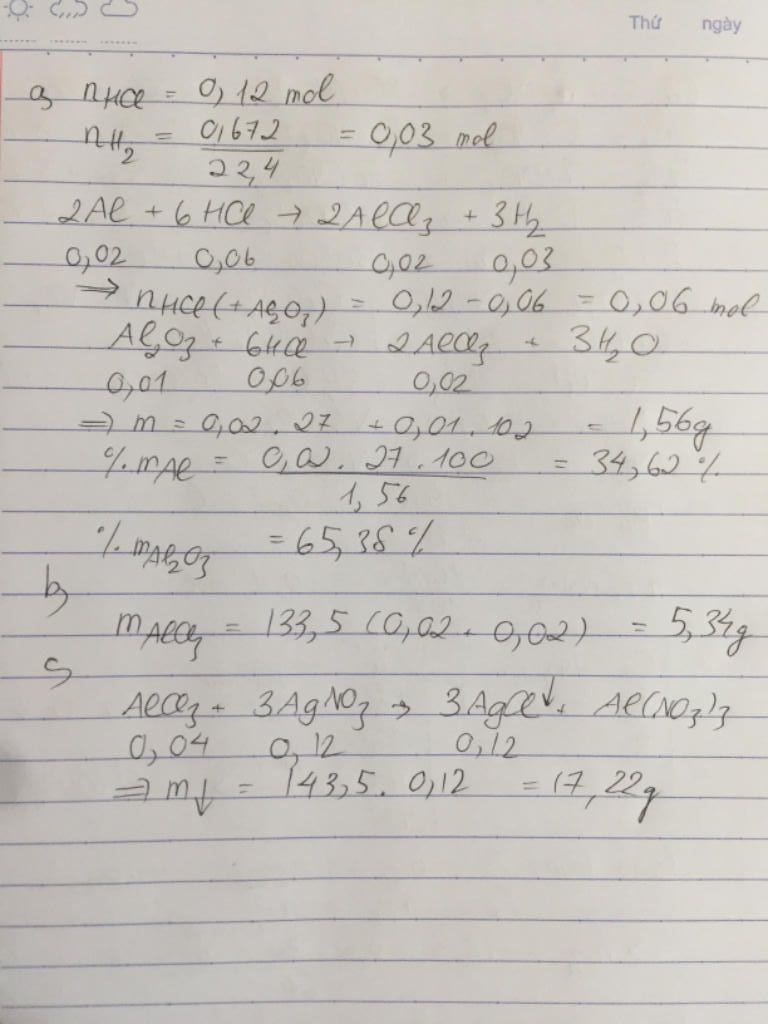 Thứ ngày
a, nHCl = 0,12 mol
nH₂ = 0,672/22,4 = 0,03 mol
2Al + 6HCl → 2AlCl₃ + 3H₂
0,02 0,06 0,02 0,03
⇒ nHCl(+Al₂O₃) = 0,12 - 0,06 = 0,06 mol
Al₂O₃ + 6HCl → 2AlCl₃ + 3H₂O
0,01 0,06 0,02
⇒ m = 0,02 . 27 + 0,01 . 102 = 1,56g
% mAl = 0,02 . 27 . 100/1,56 = 34,62 %
% mAl₂O₃ = 65,38 %
b,
mAlCl₃ = 133,5 (0,02 + 0,02) = 5,34g
c,
AlCl₃ + 3AgNO₃ → 3AgCl↓ + Al(NO₃)₃
0,04 0,12 0,12
⇒ m↓ = 143,5 . 0,12 = 17,22g